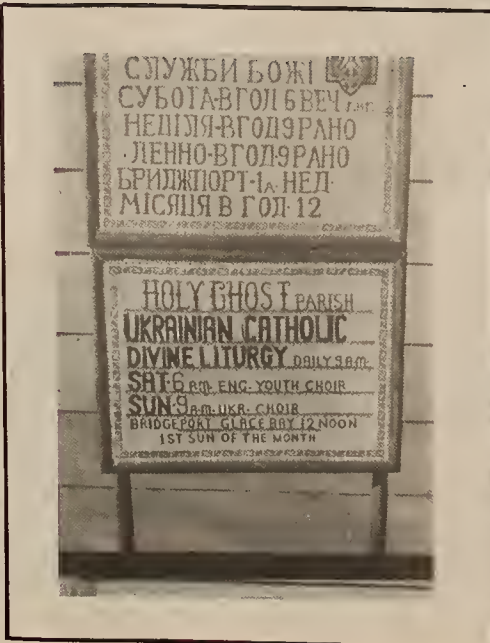 СЛУЖБИ БОЖІ
СУБОТА-В ГОД 6 ВЕЧ
НЕДІЛЯ-В ГОД 9 РАНО
ДЕННО-В ГОД-9 РАНО
БРИДЖПОРТ-1А НЕД-
МІСЯЦЯ В ГОД-12
HOLY GHOST PARISH
UKRAINIAN CATHOLIC
DIVINE LITURGY DAILY 9 A.M.
SAT-6 P.M. ENG. YOUTH CHOIR
SUN-9 A.M. UKR. CHOIR
BRIDGEPORT GLACE BAY 12 NOON
1ST SUN OF THE MONTH